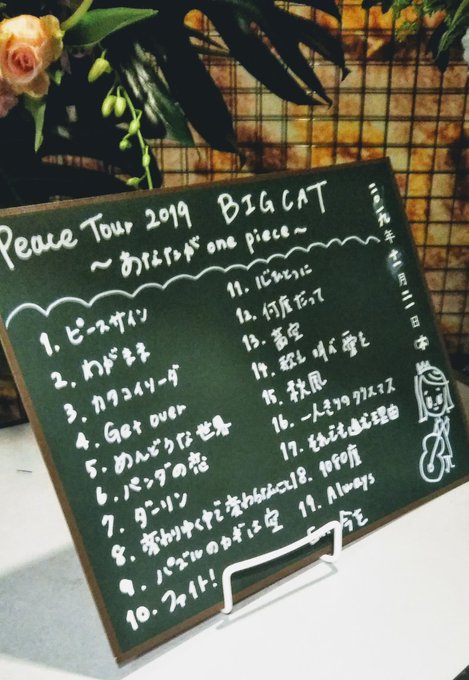 Peace Tour 2019 BIG CAT
～あなたが one piece～
二〇一九年十一月二一日(木)
1. ピースサイン
2. わがまま
3. カワコイリーダ
4. Get over
5. めんどうな世界
6. パンダの恋
7. ダーリン
8. 変わりゆく中で変わらないこと
9. パズルのカギは空
10. ファイト!
11. 心ひとつに
12. 何度だって
13. 蒼空
14. 歌も叫べ愛を
15. 秋風
16. 一人きりのクリスマス
17. それでも進む理由
18. 1080度
19. Always
今を